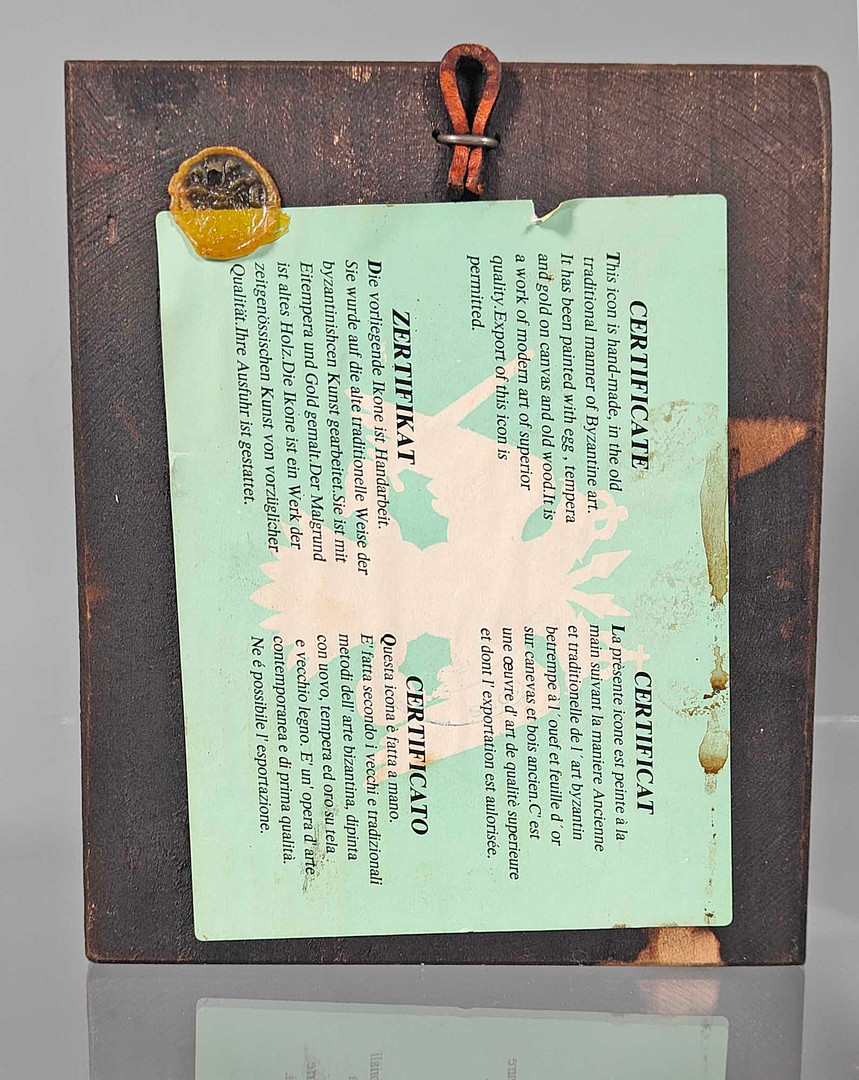 CERTIFICATE
This icon is hand-made, in the old
traditional manner of Byzantine art.
It has been painted with egg , tempera
and gold on canvas and old wood.It is
a work of modern art of superior
quality.Export of this icon is
permitted.
CERTIFICAT
La présente icone est peinte à la
main suivant la maniere Ancienne
et traditionelle de l΄art byzantin
betrempe à l΄ouef et feuille d΄or
sur canevas et bois ancien.C' est
une œuvre d' art de qualité superieure
et dont l' exportation est aulorisée.
ZERTIFIKAT
Die vorliegende Ikone ist Handarbeit.
Sie wurde auf die alte traditionelle Weise der
byzantinishcen Kunst gearbeitet.Sie ist mit
Eitempera und Gold gemalt.Der Malgrund
ist altes Holz.Die Ikone ist ein Werk der
zeitgenössischen Kunst von vorzüglicher
Qualität.Ihre Ausfuhr ist gestattet.
CERTIFICATO
Questa icona è fatta a mano.
E' fatta secondo i vecchi e tradizionali
metodi dell' arte bizantina, dipinta
con uovo, tempera ed oro su tela
e vecchio legno. E' un' opera d' arte
contemporanea e di prima qualità.
Ne é possibile l' esportazione.